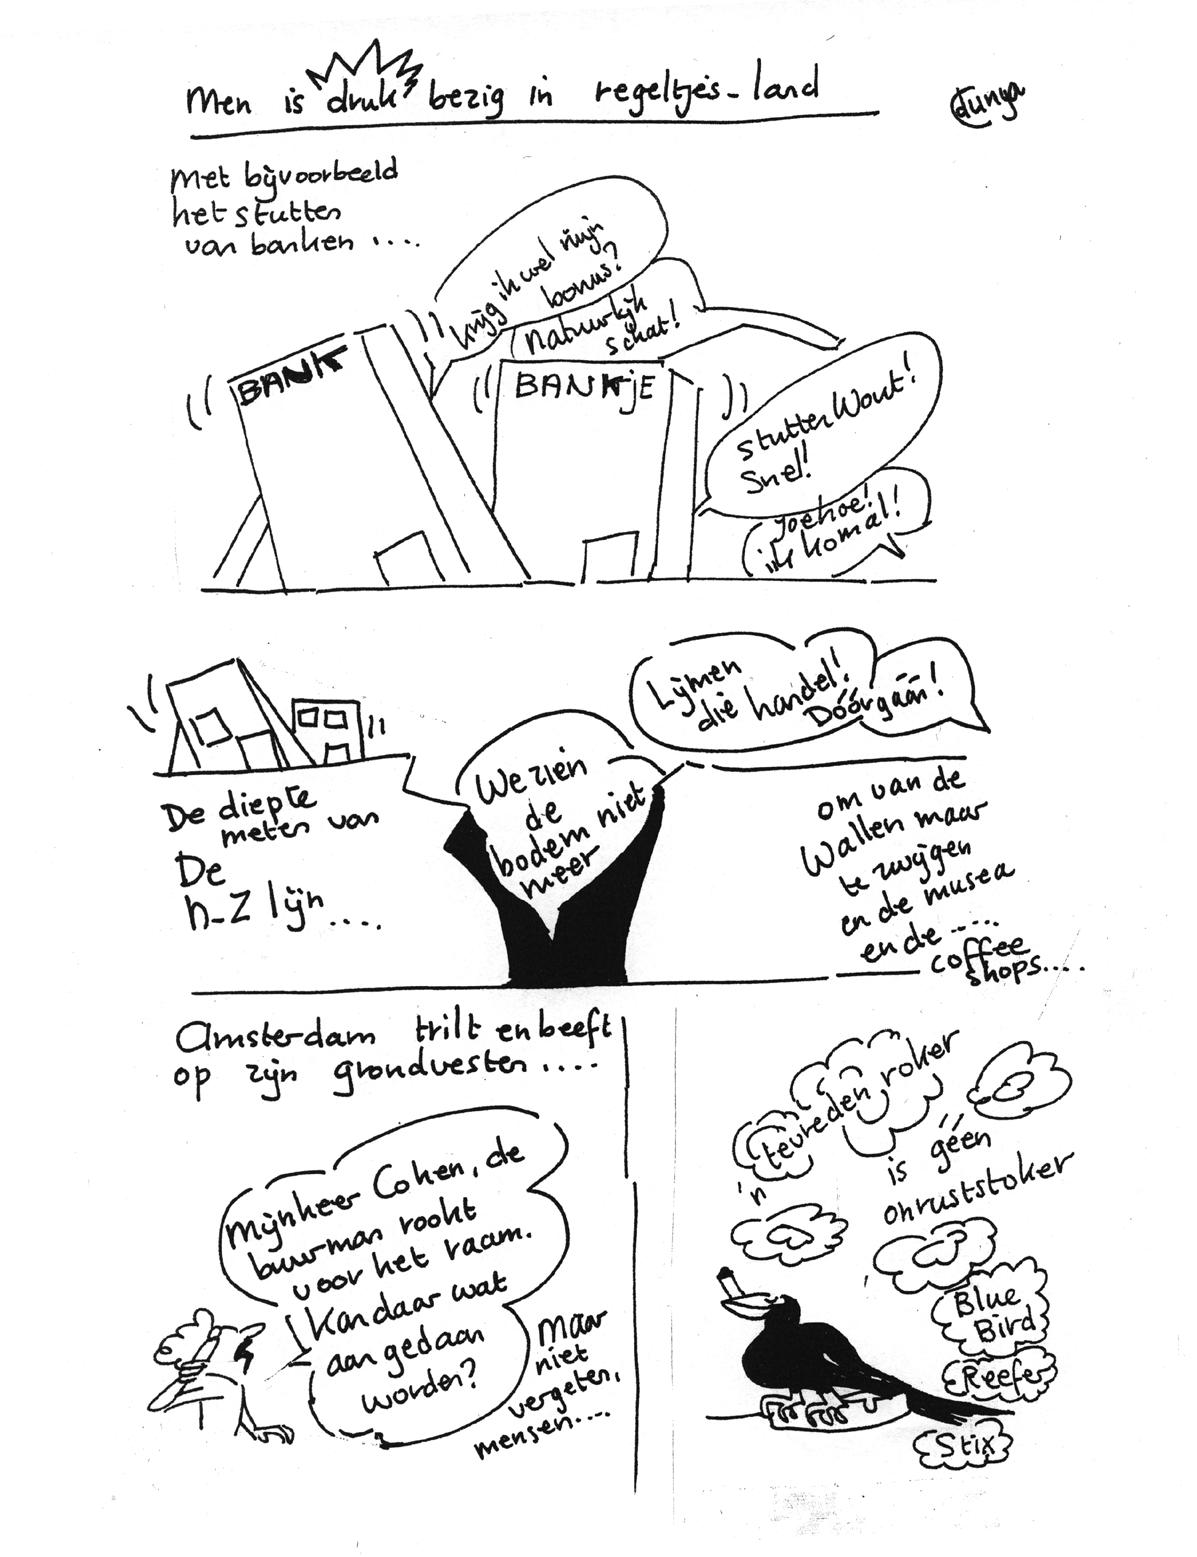 Men is druk bezig in regeltjes-land
dunga
Met bijvoorbeeld
het stutten
van banken ....
krijg ik wel mijn
bonus?
natuurlijk
schat!
BANK
BANKjE
stutten Wout!
Snel!
joehoe!
ik kom al!
Lijmen
die handel!
Dóórgáán!
We zien
de
bodem niet
meer
De diepte
meten van
De
n-Z lijn ....
om van de
Wallen maar
te zwijgen
en de musea
en de .....
coffee
shops....
Amsterdam trilt en beeft
op zijn grondvesten ....
Mijnheer Cohen, de
buurman rookt
voor het raam.
Kan daar wat
aan gedaan
worden?
Maar
niet
vergeten,
mensen....
'n tevreden roker
is géén
onruststoker
Blue
Bird
Reefer
Stix